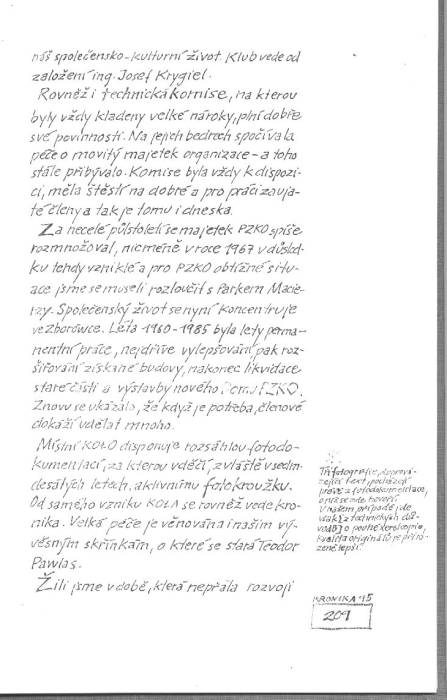 náš společensko-kulturní život. Klub vede od
založení ing. Josef Krygiel.
Rovněž i technická komise, na kterou
byly vždy kladeny velké nároky, plní dobře
své povinnosti. Na jejich bedrech spočívala
péče o movitý majetek organizace - a toho
stále přibývalo. Komise byla vždy k dispozi-
ci, měla štěstí na dobré a pro práci zauja-
té členy a tak je tomu i dneska.
Za necelé půlstoletí se majetek PZKO spíše
rozmnožoval, nicméně v roce 1967 v důsled-
ku tehdy vzniklé a pro PZKO obtížné situ-
ace jsme se museli rozloučit s Parkem Macie-
rzy. Společenský život se nyní koncentruje
ve zborówce. Léta 1960-1985 byla lety perma-
nentní práce, nejdříve vylepšování, pak roz-
šiřování získané budovy, nakonec likvidace
staré části a výstavby nového PZKO.
Znovu se ukázalo, že když je potřeba, členové
dokáží udělat mnoho.
Místní KOŁO disponuje rozsáhlou fotodo-
kumentací, za kterou vděčí, zvláště v sedm-
desátých letech, aktivnímu fotokroužku.
Od samého vzniku KOŁA se rovněž vede kro-
nika. Velká péče je věnována i našim vý-
věsným skříňkám, o které se stará Teodor
Pawlas.
Žili jsme v době, která nepřála rozvoji
Tři fotografie, doprová-
zející text, pocházejí
právě z fotodokumentace,
o níž se zde hovoří.
V našem případě jde
však z technických dů-
vodů o pouhé xerokopie,
kvalita originálů je přiro-
zeně lepší.
KRONIKA '95
209